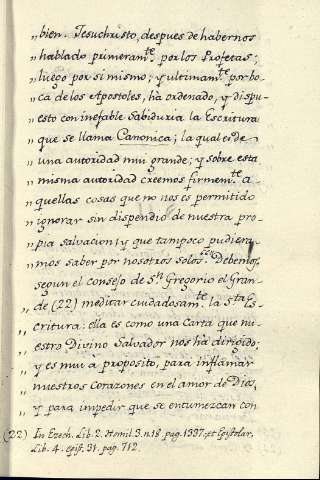 „bien. Jesuchristo, despues de habernos
„hablado primeram.te por los Profetas;
„luego por si mismo; y ultimam.te por bo-
„ca de los Apostoles, ha ordenado, y dispu-
„esto con inefable Sabiduria la Escritura
„que se llama Canonica; la qual es de
„una autoridad mui grande; y sobre esta
„misma autoridad creemos firmem.te a-
„quellas cosas que no nos es permitido
„ignorar sin dispendio de nuestra pro-
„pia salvacion, y que tampoco pudiera-
„mos saber por nosotros solos. Debemos,
„segun el consejo de S.n Gregorio el Gran-
„de (22) meditar cuidadosam.te la S.ta Es-
„critura: ella es como una Carta que nu-
„estro Divino Salvador nos ha dirigido;
„y es mui à proposito, para inflamar
„nuestros corazones en el amor de Dios,
„y para impedir que se entumezcan con
(22) In Ezech. Lib. 2. Homil. 3. n. 18. pag. 1337. et Epistolar.
Lib. 4. epist. 31. pag. 712.